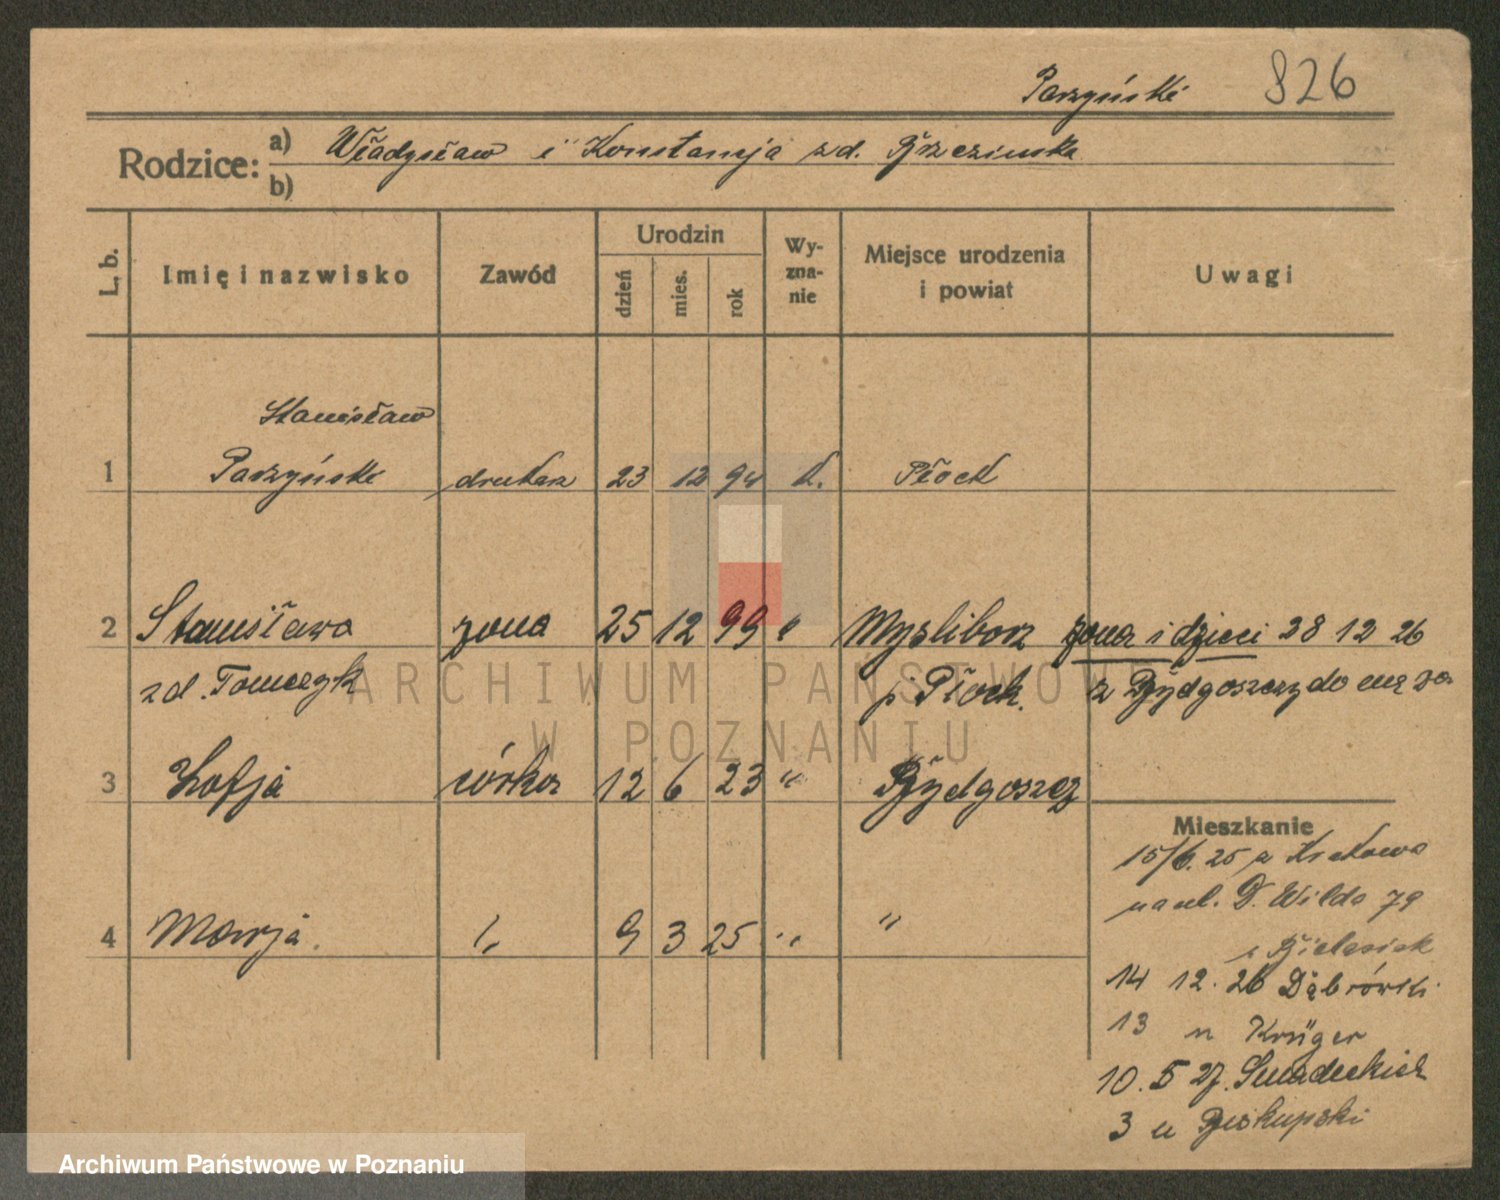 Parzyński 826
Rodzice: a) Władysław i Konstancja zd. Brzezińska
b)
L. b. Imię i nazwisko Zawód Urodzin dzień mies. rok Wy-zna-nie Miejsce urodzenia i powiat Uwagi
Stanisław
1 Parzyński drukarz 23 12 94 k. Płock
2 Stanisława żona 25 12 99 " Mysliborz żona i dzieci 28 12 26
zd. Tomczyk p. Płock. z Bydgoszczy do męża
3 Zofja córka 12 6 23 " Bydgoszcz
Mieszkanie
15/6. 25 z Krakowa
na ul. D. Wilda 79
4 Marja. " 9 3 25 " "
u Bielasiak
14 12. 26 Dąbrówki
13 u Krüger
10. 5 27. Sniadeckich
3 u Biskupski
ARCHIWUM PAŃSTWOWE
W POZNANIU
Archiwum Państwowe w Poznaniu